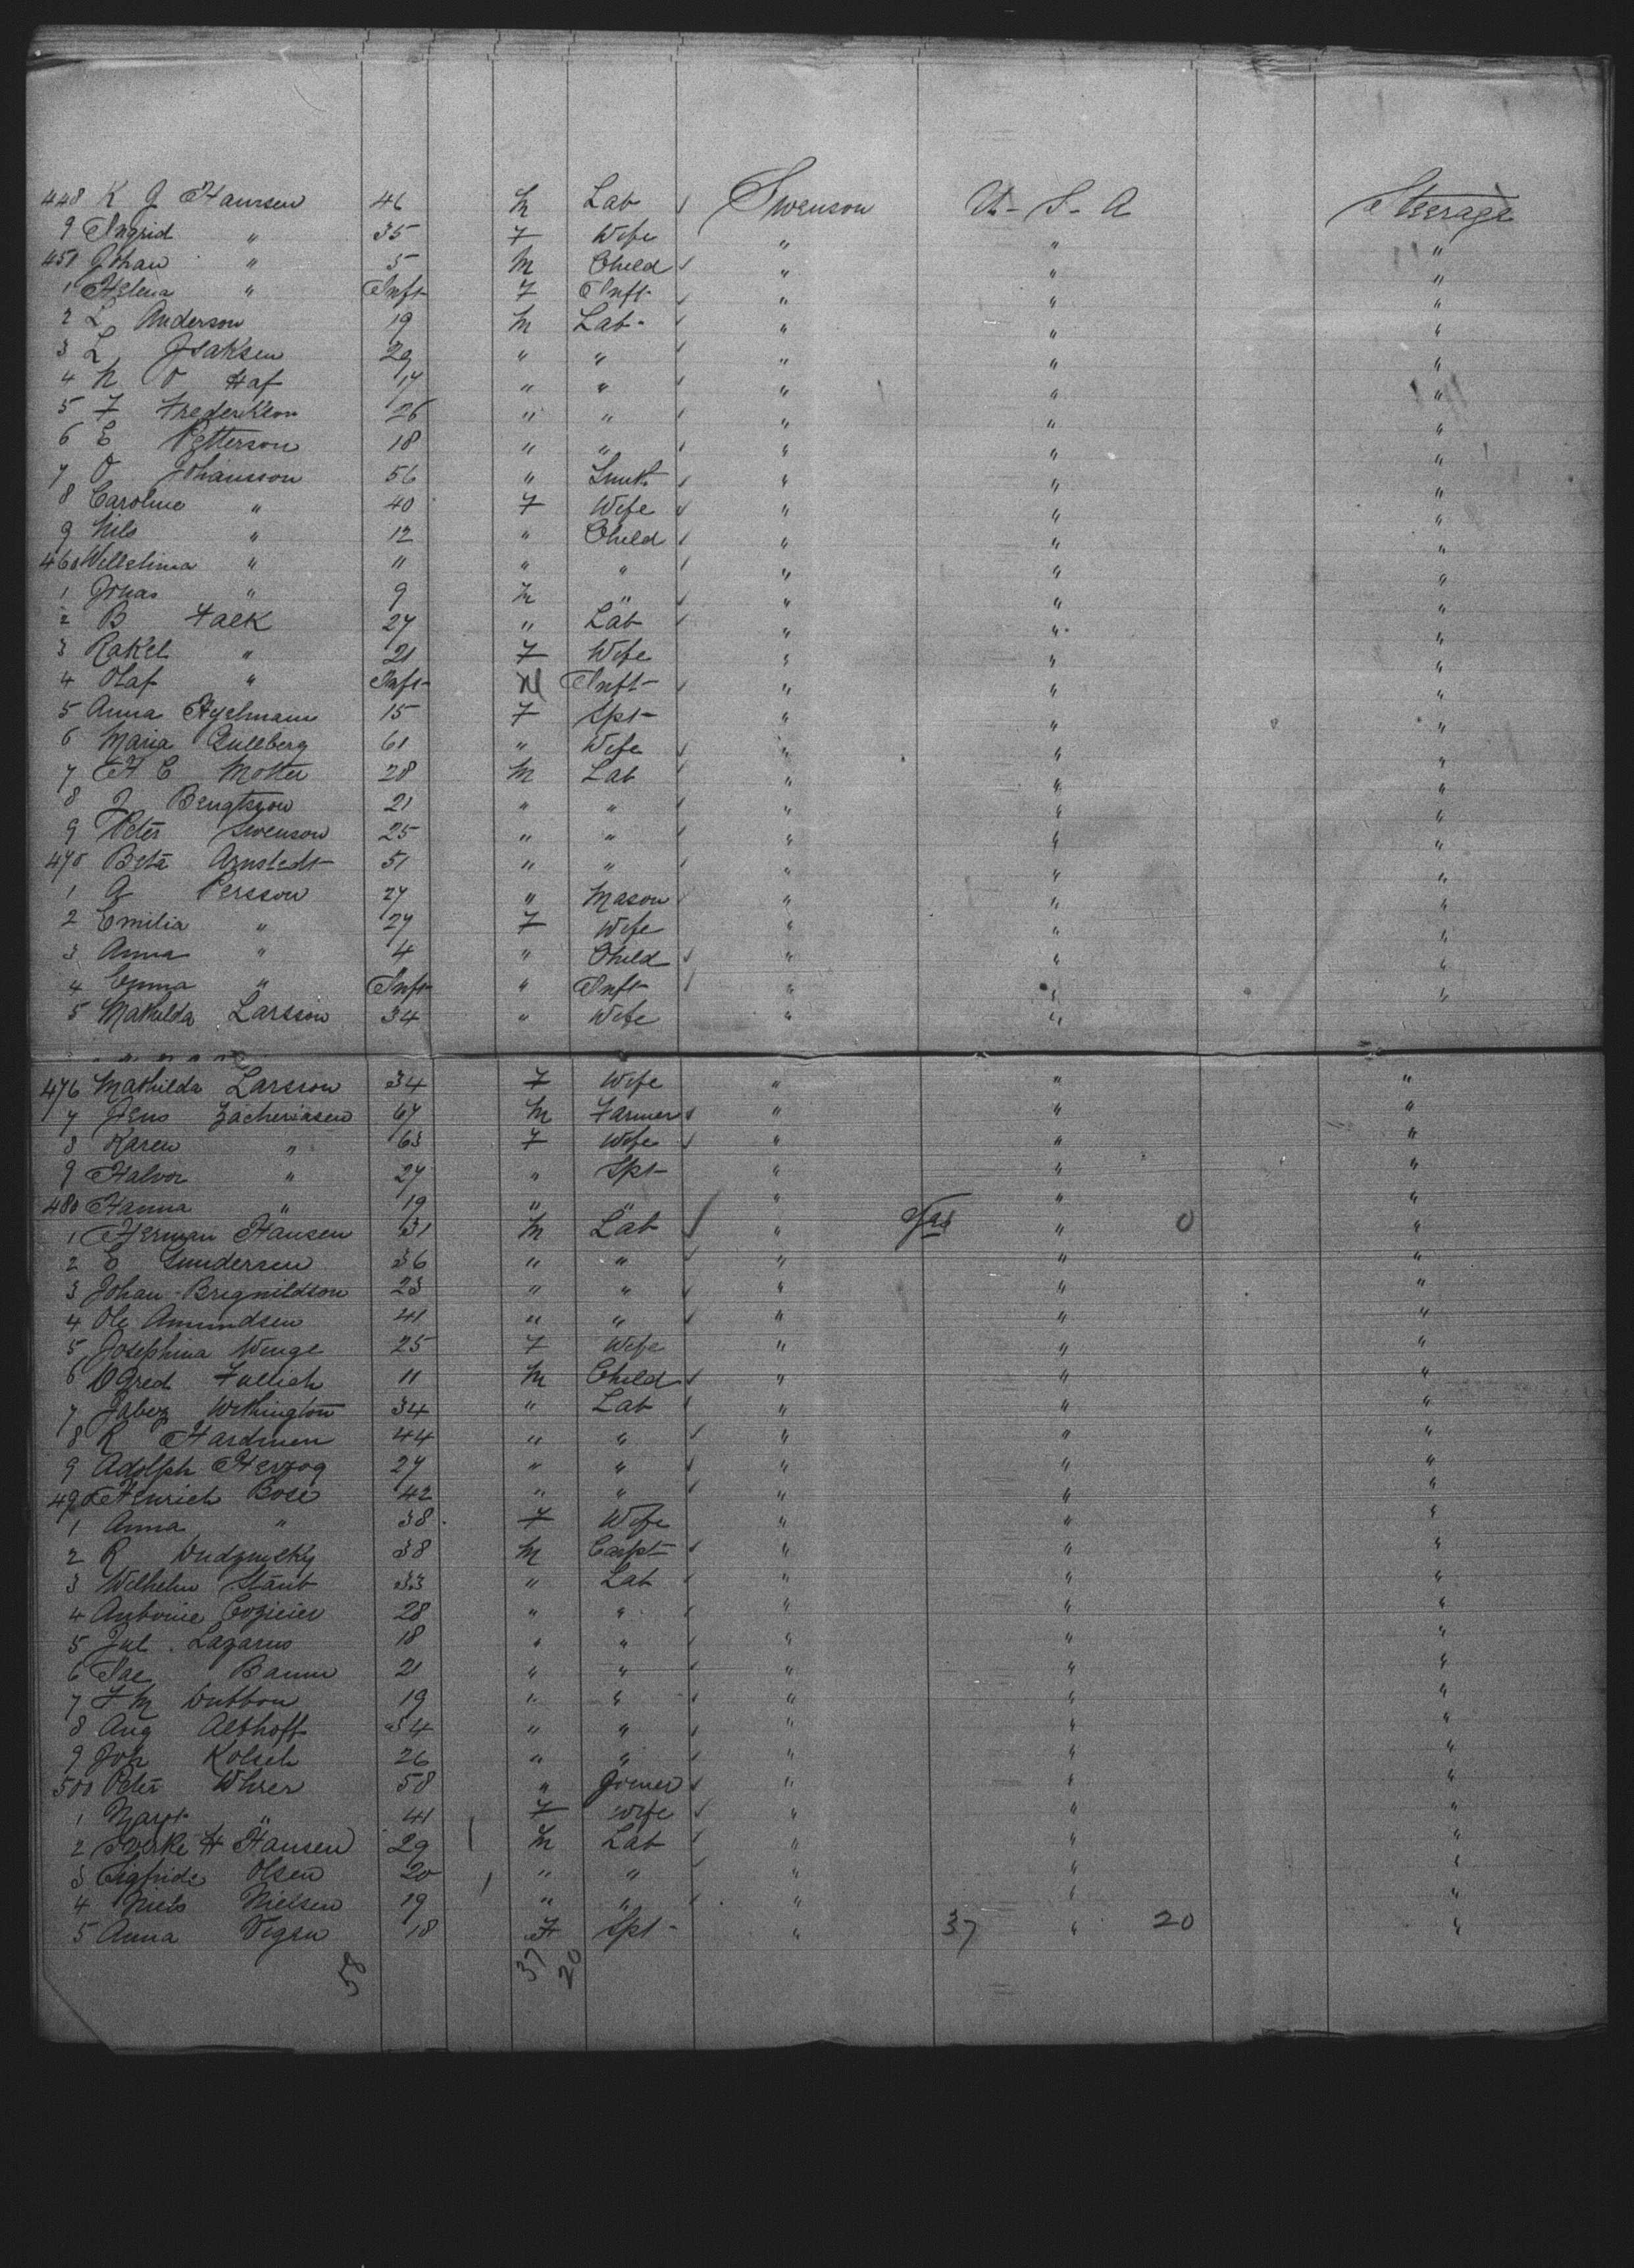 448 K G Haursen 46 M Lab ✓ Swenson U-S-A Steerage
9 Ingrid " 35 F Wife " " "
450 Johan " 5 M Child ✓ " " "
1 Helena " Inft F Inft ✓ " " "
2 L Anderson 19 M Lab ✓ " " "
3 L Isaksen 29 " " ✓ " " "
4 N O Haf 17 " " ✓ " " "
5 F Frederikson 26 " " ✓ " " "
6 E Petterson 18 " " ✓ " " "
7 O Johansson 56 " Smith ✓ " " "
8 Caroline " 40 F Wife ✓ " " "
9 Nils " 12 " Child ✓ " " "
460 Willelmina " 11 " " ✓ " " "
1 Jonas " 9 M " ✓ " " "
2 B Falk 27 " Lab ✓ " " "
3 Rakel " 21 F Wife " " "
4 Olaf " Inft M Inft ✓ " " "
5 Anna Hyelmann 15 F Spt " " "
6 Maria Gulleberg 61 " Wife ✓ " " "
7 H C Moller 28 M Lab ✓ " " "
8 J Bengtsson 21 " " ✓ " " "
9 Peter Swenson 25 " " ✓ " " "
470 Beta Arnstedt 51 " " ✓ " " "
1 A Persson 27 " Mason ✓ " " "
2 Emilia " 27 F Wife " " "
3 Anna " 4 " Child ✓ " " "
4 Emma " Inft " Inft ✓ " " "
5 Mathilda Larsson 34 " Wife " "
476 Mathilda Larsson 34 F Wife " " "
7 Jens Zacheriasen 67 M Farmer ✓ " " "
8 Karen " 63 F Wife ✓ " " "
9 Halvor " 27 " Spt " " "
480 Hanna " 19 " " " " "
1 Herman Hansen 31 M Lab ✓ " Yes " 0 "
2 E Gundersen 36 " " ✓ " " "
3 Johan Brignildson 23 " " ✓ " " "
4 Ole Amundsen 41 " " ✓ " " "
5 Josephina Wenge 25 F Wife " " "
6 Fullich 11 M Child ✓ " " "
7 Jabez Withington 34 " Lab ✓ " " "
8 R Hardmen 44 " " ✓ " " "
9 Adolph Herzog 27 " " ✓ " " "
490 Heinrich Bose 42 " " ✓ " " "
1 Anna " 38 F Wife " " "
2 R 38 M Carpt ✓ " " "
3 Wilhelm Staub 33 " Lab ✓ " " "
4 Antonie 28 " " ✓ " " "
5 Jul. Lazarus 18 " " ✓ " " "
6 Isac Baum 21 " " ✓ " " "
7 F M Dubbon 19 " " ✓ " " "
8 Aug Althoff 34 " " ✓ " " "
9 Joh Kolsch 26 " " ✓ " " "
500 Peter Whrer 58 " Joiner ✓ " " "
1 Margt " 41 F Wife ✓ " " "
2 H Hansen 29 M Lab ✓ " " "
3 Sigfride Olsen 20 " " ✓ " " "
4 Niels Nielsen 19 " " ✓ " " "
5 Anna Vigen 18 F Spt " 37 " 20 "
58 37 20